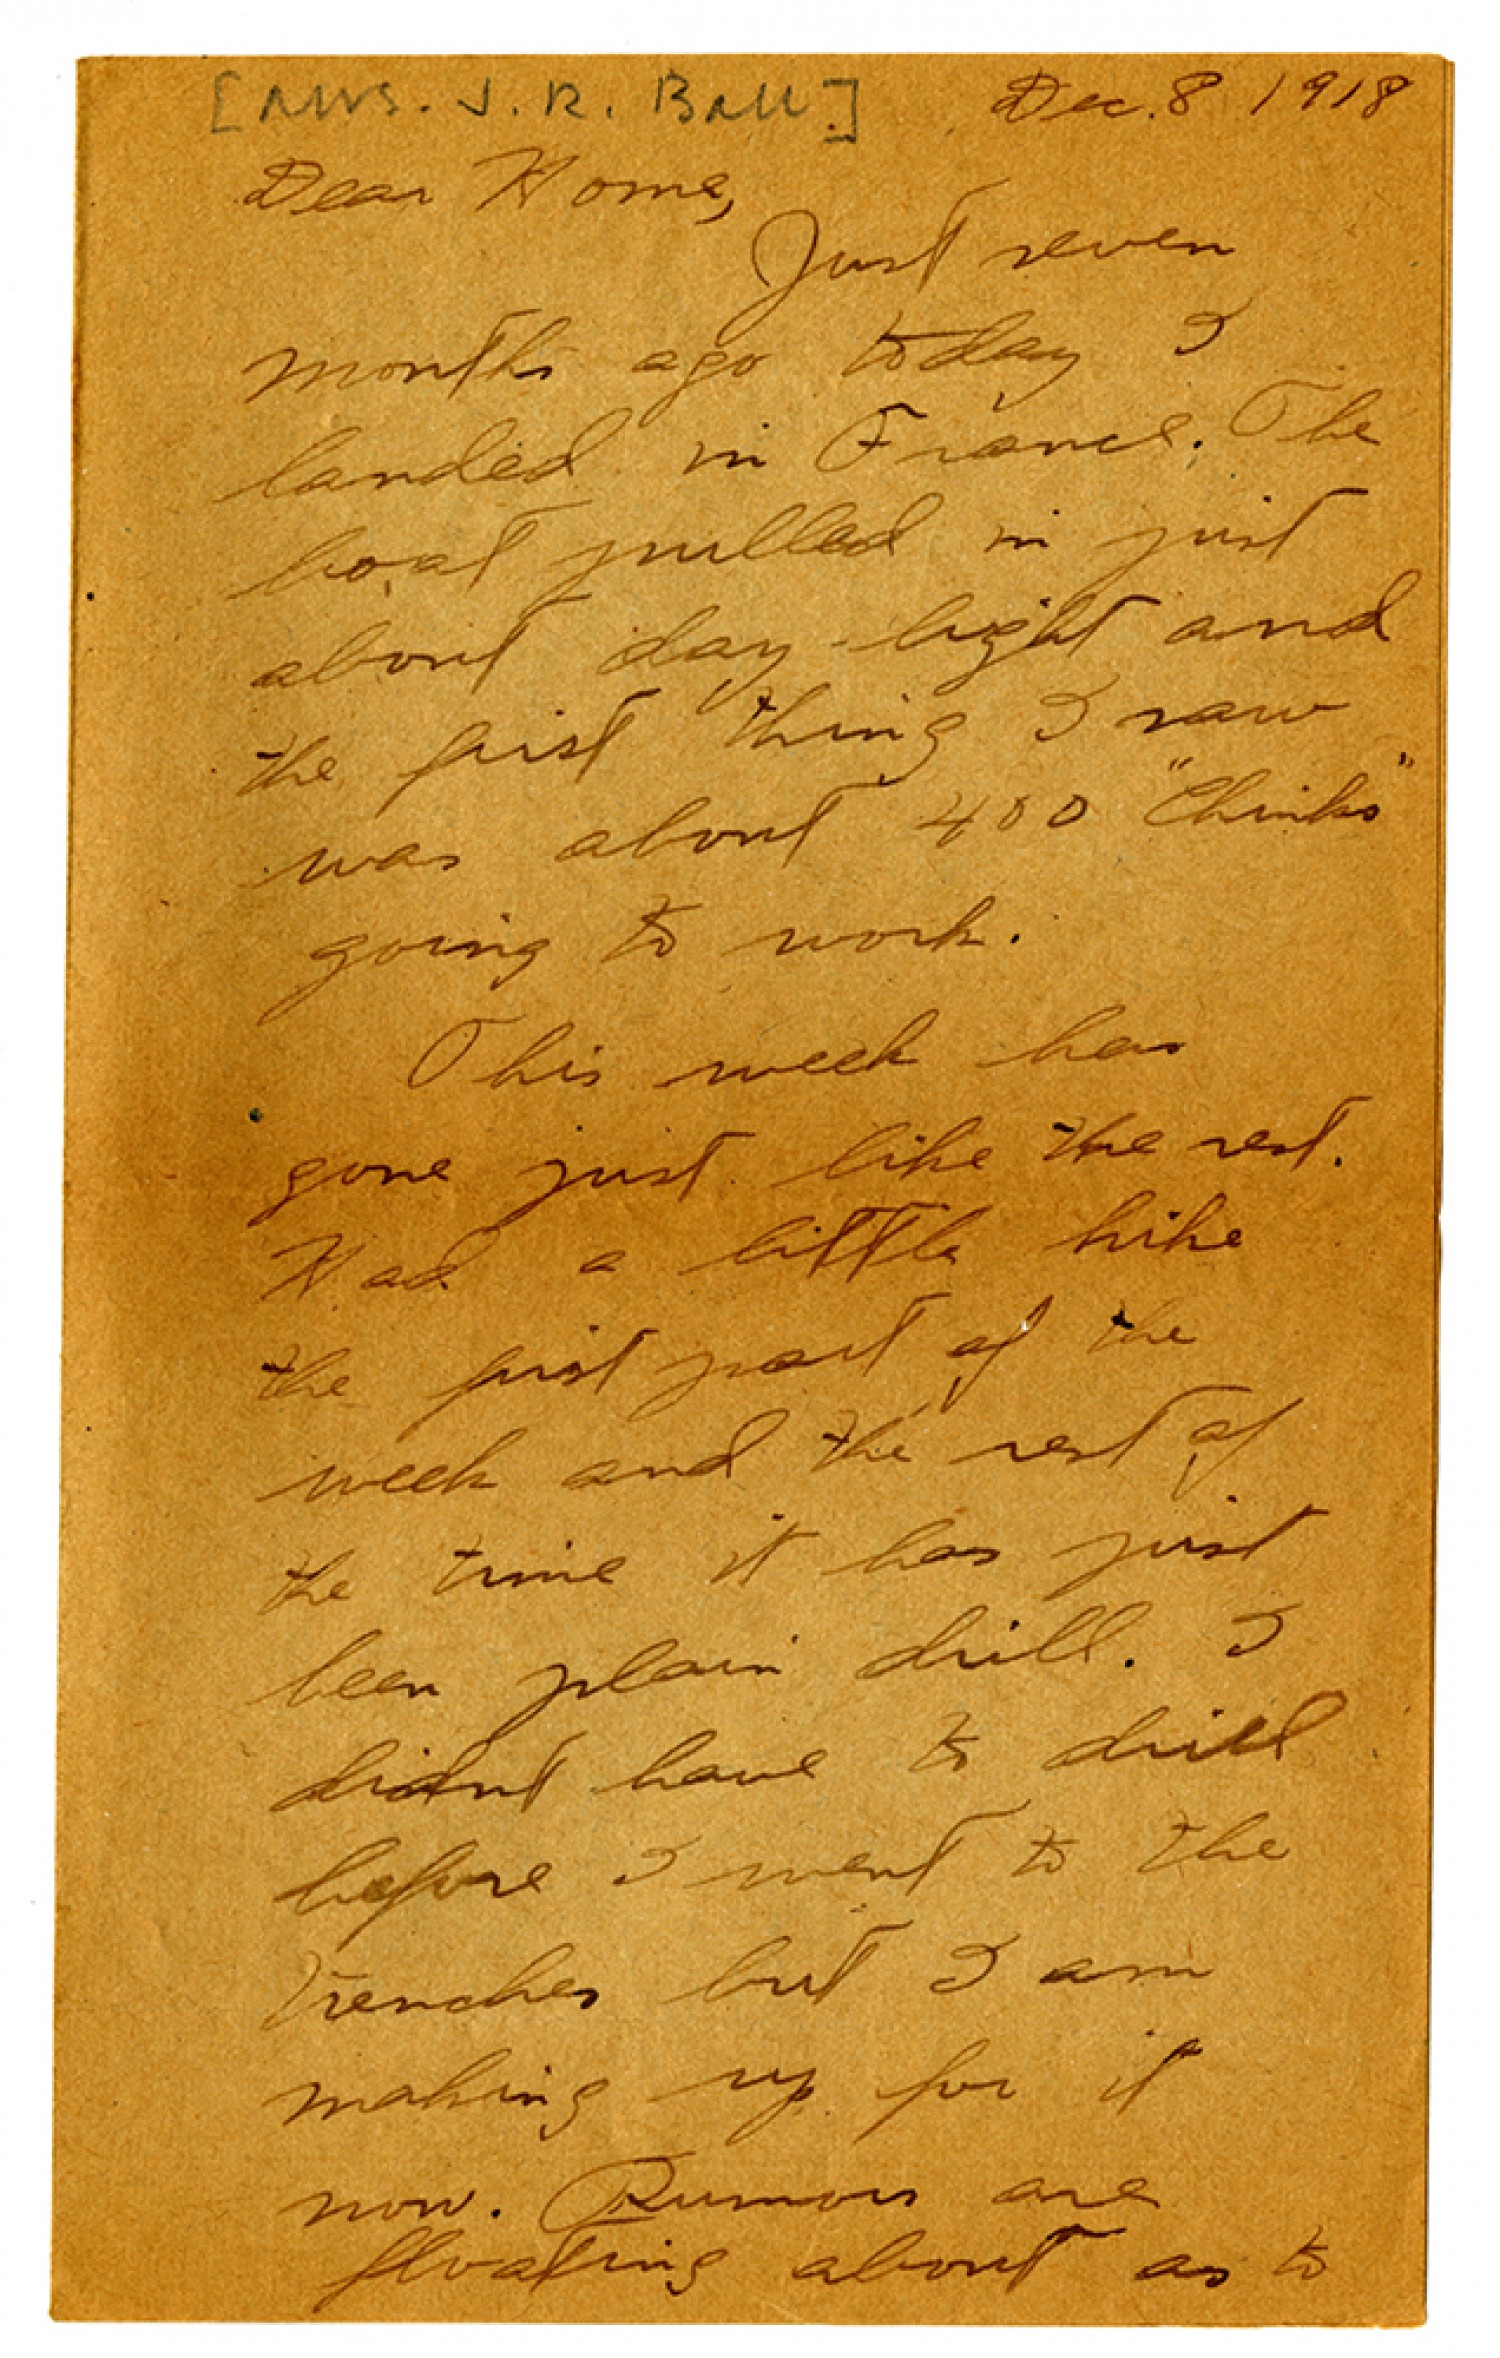 [Mrs. J. R. Ball] Dec. 8 1918
Dear Home,
Just seven
months ago today I
landed in France. The
boat pulled in just
about day-light and
the first thing I saw
was about 400 "Chinks"
going to work.
This week has
gone just like the rest.
Had a little hike
the first part of the
week and the rest of
the time it has just
been plain drill. I
didnt have to drill
before I went to the
trenches but I am
making up for it
now. Rumors are
floating about as to